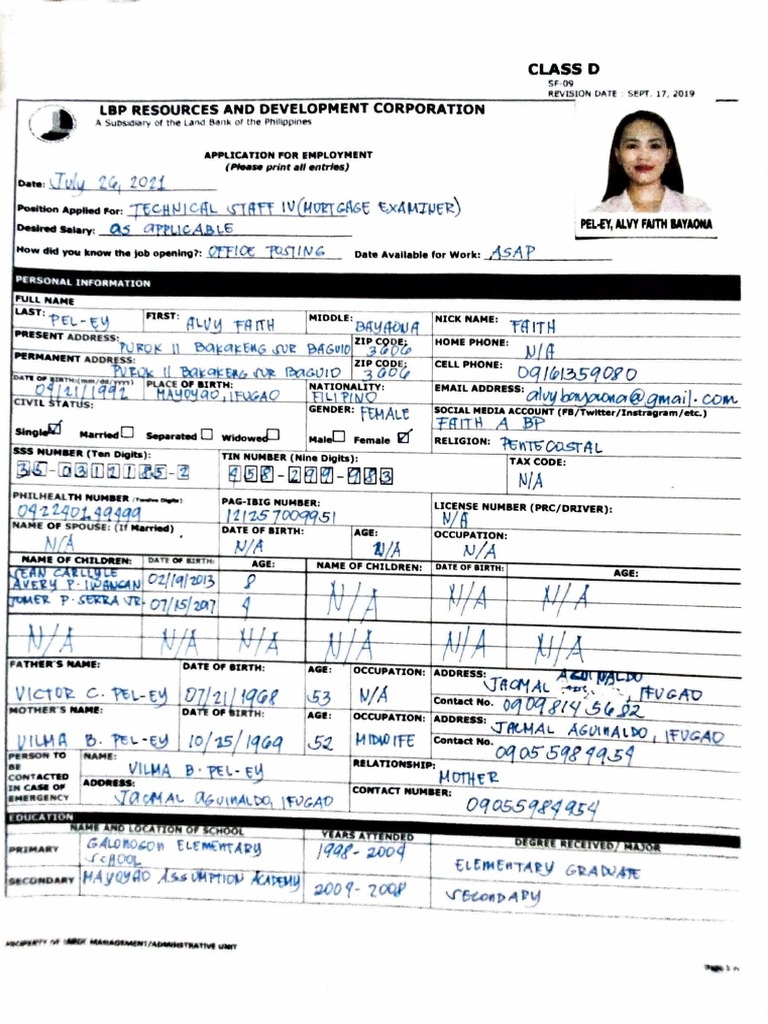 CLASS D
SF-09
REVISION DATE : SEPT. 17, 2019
LBP RESOURCES AND DEVELOPMENT CORPORATION
A Subsidiary of the Land Bank of the Philippines
APPLICATION FOR EMPLOYMENT
(Please print all entries)
Date: July 26, 2021
PEL-EY, ALVY FAITH BAYAONA
Position Applied For: TECHNICAL STAFF IV (MORTGAGE EXAMINER)
Desired Salary: as APPLICABLE
How did you know the job opening?: OFFICE POSTING Date Available for Work: ASAP
PERSONAL INFORMATION
FULL NAME
LAST: PEL-EY FIRST: ALVY FAITH MIDDLE: BAYAONA NICK NAME: FAITH
PRESENT ADDRESS: PUROK 11 BAKAKENG SUR BAGUIO ZIP CODE: 2600 HOME PHONE: N/A
PERMANENT ADDRESS: PUROK 11 BAKAKENG SUR BAGUIO ZIP CODE: 2600 CELL PHONE: 09161359080
DATE OF BIRTH:(mm/dd/yyyy) 09/21/1992 PLACE OF BIRTH: MAYOYAO, IFUGAO NATIONALITY: FILIPINO EMAIL ADDRESS: alvybayaona@gmail.com
CIVIL STATUS: GENDER: FEMALE SOCIAL MEDIA ACCOUNT (FB/Twitter/Instragram/etc.) FAITH A BP
Single Married Separated Widowed Male Female RELIGION: PENTECOSTAL
SSS NUMBER (Ten Digits): TIN NUMBER (Nine Digits): TAX CODE:
35-0312185-2 458-299-983 N/A
PHILHEALTH NUMBER (Twelve Digits) PAG-IBIG NUMBER: LICENSE NUMBER (PRC/DRIVER):
042240149499 121257009951 N/A
NAME OF SPOUSE: (If Married) DATE OF BIRTH: AGE: OCCUPATION:
N/A N/A N/A N/A
NAME OF CHILDREN: DATE OF BIRTH: AGE: NAME OF CHILDREN: DATE OF BIRTH: AGE:
SEAN CARLLYLE
AVERY P. IWANGAN 02/19/2013 8 N/A N/A N/A
JOMER P. SERRA JR. 07/15/2017 4
N/A N/A N/A N/A N/A N/A
FATHER'S NAME: DATE OF BIRTH: AGE: OCCUPATION: ADDRESS: JACMAL AGUINALDO, IFUGAO
VICTOR C. PEL-EY 07/21/1968 53 N/A Contact No. 09098145682
MOTHER'S NAME: DATE OF BIRTH: AGE: OCCUPATION: ADDRESS: JACMAL AGUINALDO, IFUGAO
VILMA B. PEL-EY 10/25/1969 52 MIDWIFE Contact No. 09055984954
PERSON TO BE CONTACTED IN CASE OF EMERGENCY NAME: VILMA B. PEL-EY RELATIONSHIP: MOTHER
ADDRESS: JACMAL AGUINALDO, IFUGAO CONTACT NUMBER: 09055984954
EDUCATION
NAME AND LOCATION OF SCHOOL YEARS ATTENDED DEGREE RECEIVED/ MAJOR
PRIMARY GALONOGON ELEMENTARY SCHOOL 1998-2004 ELEMENTARY GRADUATE
SECONDARY MAYOYAO ASSUMPTION ACADEMY 2004-2008 SECONDARY
PROPERTY OF LBRDC MANAGEMENT/ADMINISTRATIVE UNIT